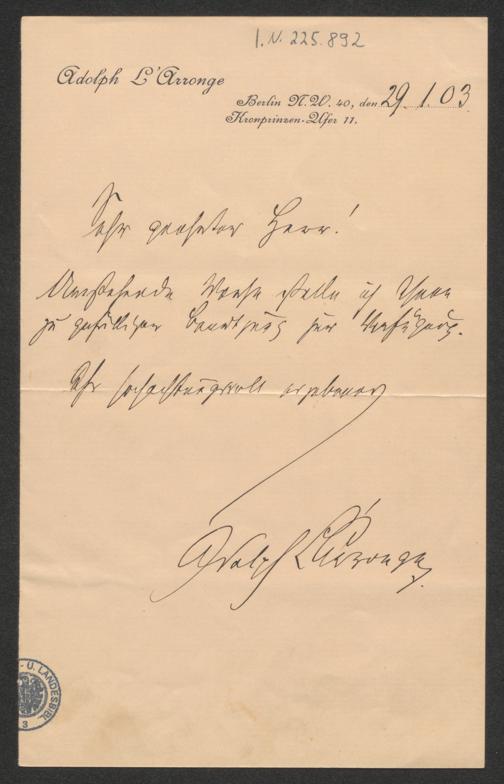 I.N. 225.892
Adolph L'Arronge
Berlin N.W. 40, den 29.1.03
Kronprinzen-Ufer 11.
Sehr geehrter Herr!
Umstehende Worte stelle ich Ihnen
zu gefälliger Benutzung zur Verfügung.
Ihr hochachtungsvoll ergebener
Adolph L'Arronge
- U. LANDESBIBL
3